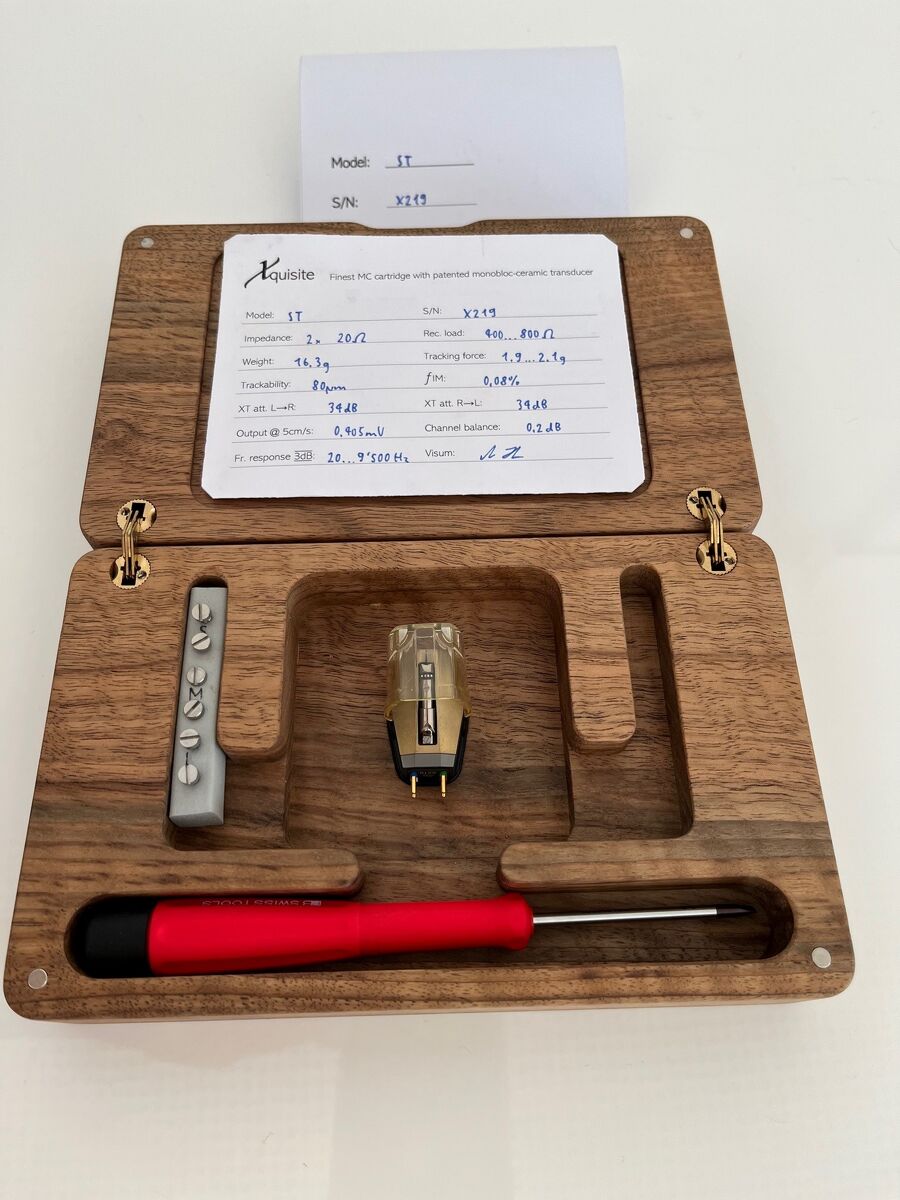 Model: ST
S/N: X219
Xquisite Finest MC cartridge with patented monobloc-ceramic transducer
Model: ST S/N: X219
Impedance: 2x 20Ω Rec. load: 400...800Ω
Weight: 16,3g Tracking force: 1,9...2,1g
Trackability: 80µm fIM: 0,08%
XT att. L→R: 34dB XT att. R→L: 34dB
Output @ 5cm/s: 0,405mV Channel balance: 0,2dB
Fr. response 3dB: 20...9'500Hz Visum:
S
M
L
SWISSTOOLS